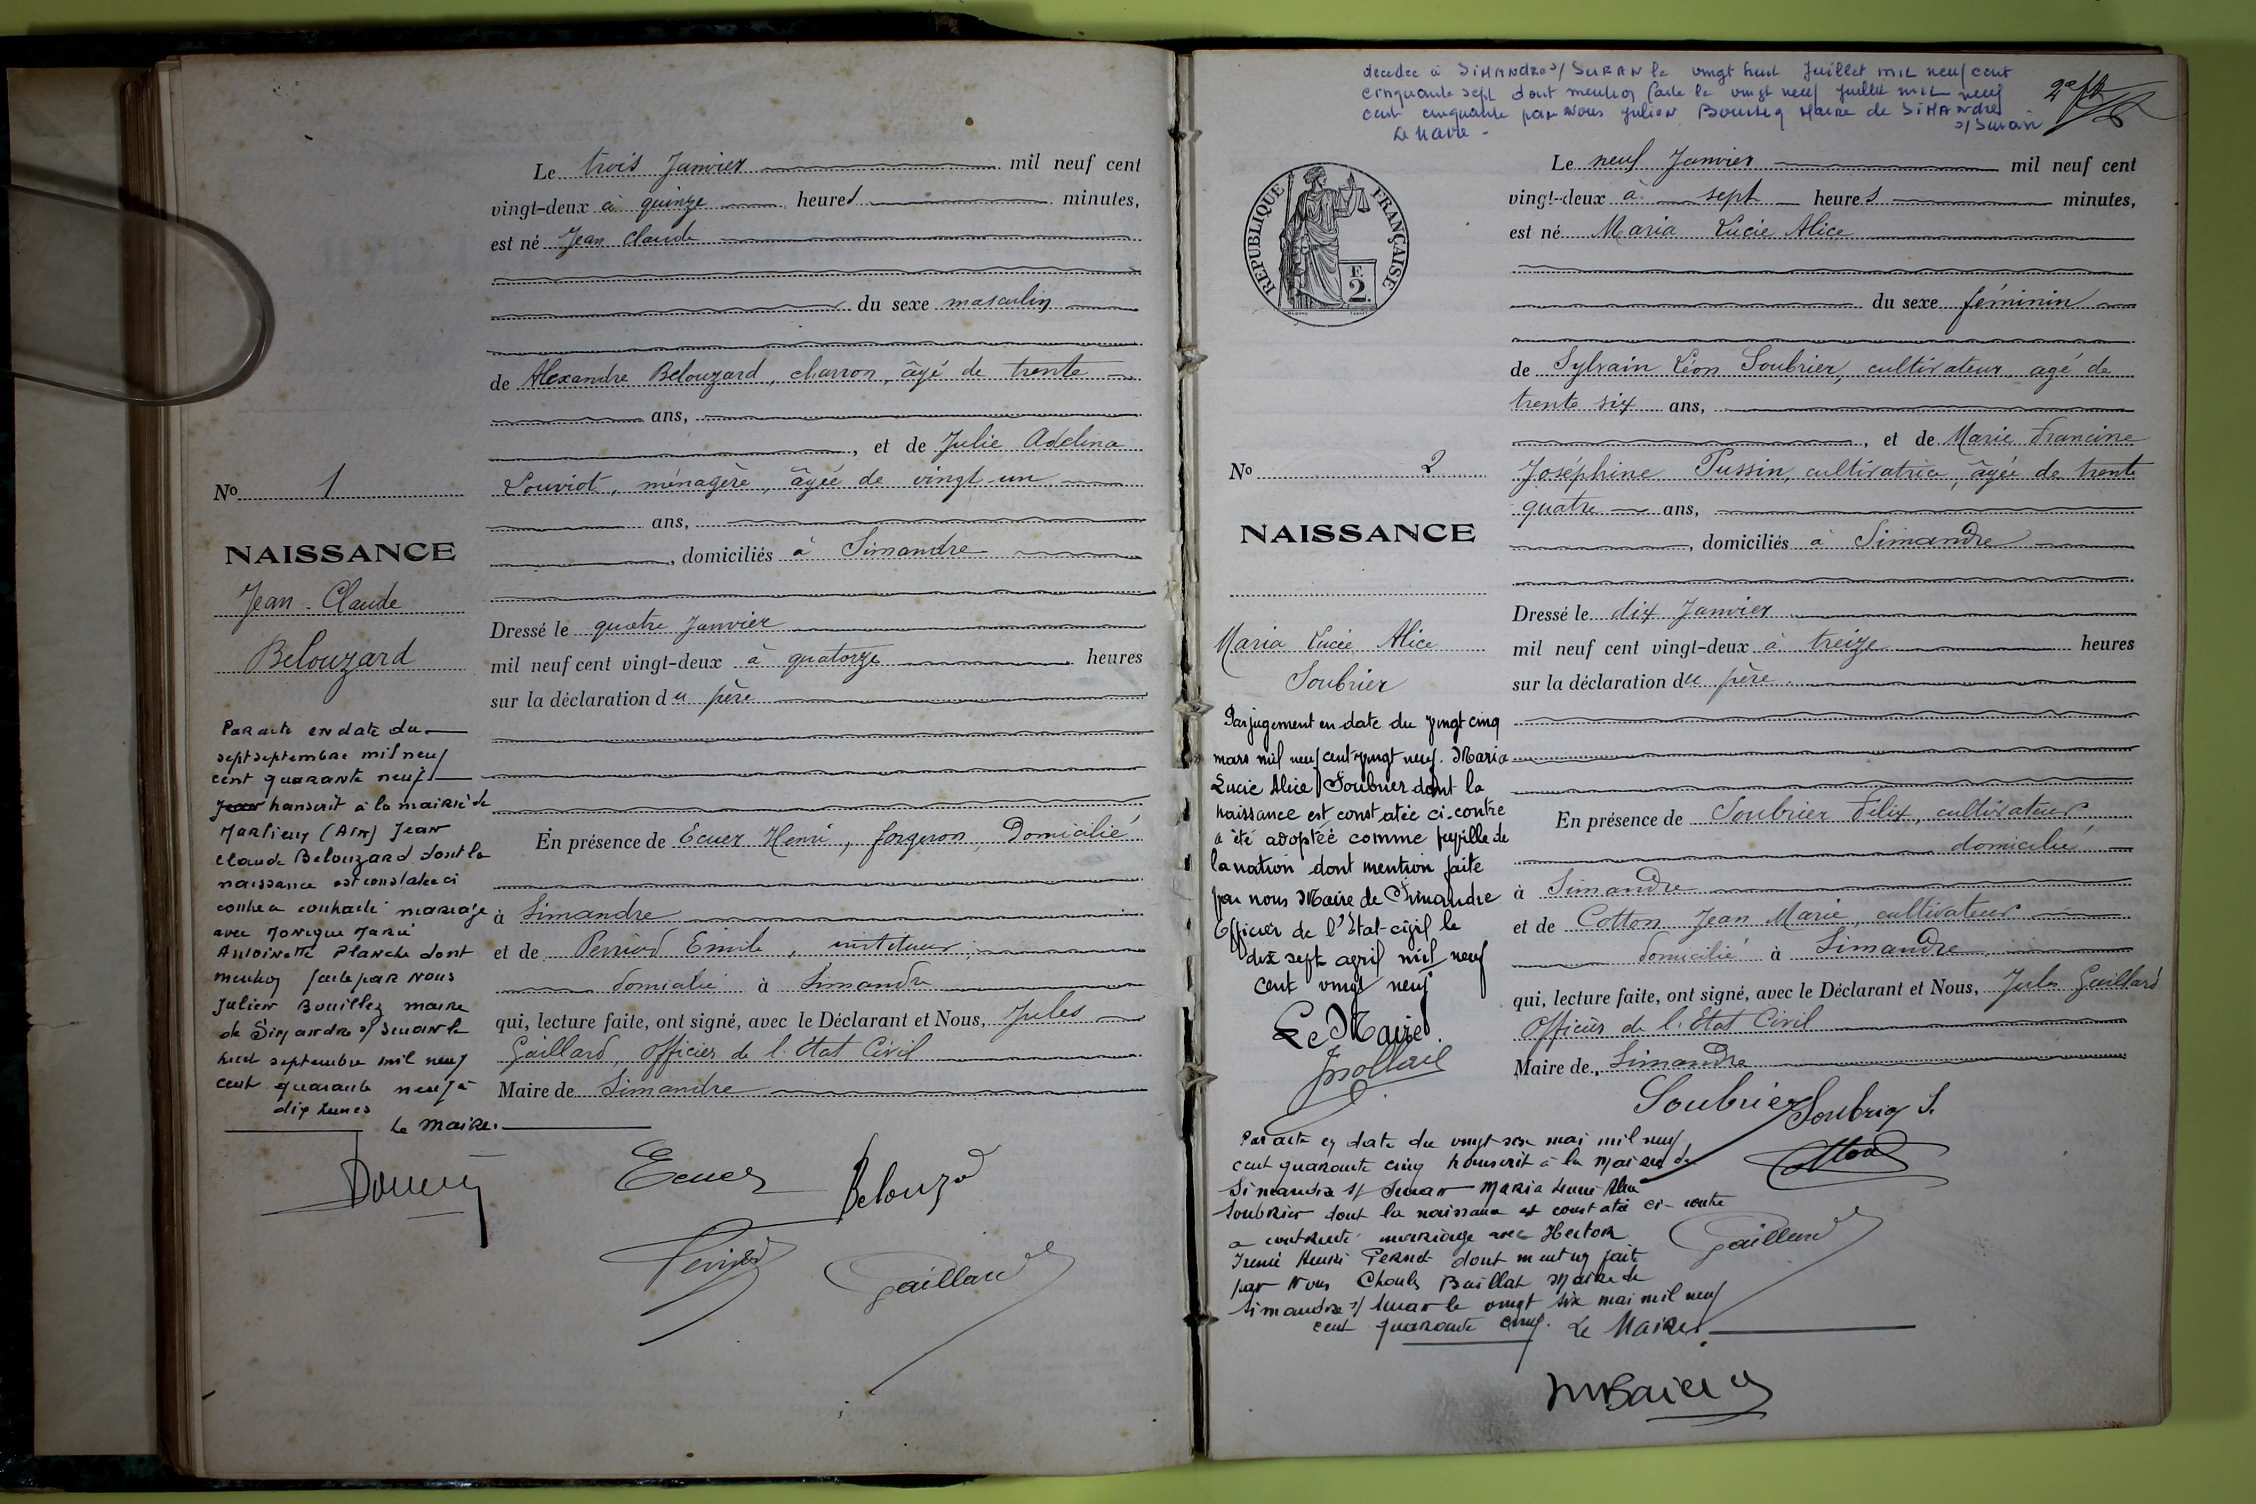 Le trois Janvier mil neuf cent
vingt-deux à quinze heures minutes,
est né Jean Claude
du sexe masculin
de Alexandre Belouzard, charron, âgé de trente
ans,
, et de Julie Adelina
Louviot, ménagère, âgée de vingt-un
ans,
, domiciliés à Simandre
Dressé le quatre Janvier
mil neuf cent vingt-deux à quatorze heures
sur la déclaration du père
En présence de Ecuer Henri, forgeron, Domicilié
à Simandre
et de Perriod Emile, instituteur,
domicilié à Simandre
qui, lecture faite, ont signé, avec le Déclarant et Nous, Jules
Gaillard, Officier de l'Etat Civil
Maire de Simandre
No 1
NAISSANCE
Jean-Claude
Belouzard
Par acte en date du
sept septembre mil neuf
cent quarante neuf
Jean transcrit à la mairie de
(Ain) Jean
Claude Belouzard dont la
naissance est constatée ci
contre a contracté mariage
avec Monique Marie
Antoinette Planche dont
mention faite par nous
Julien Bouillez maire
de Simandre s/ Suran le
huit septembre mil neuf
cent quarante neuf à
dix heures
Le Maire.
Ecuer
Belouzard
Perriod
Gaillard
décédée à SIMANDRE s/ SURAN le vingt huit Juillet mil neuf cent
cinquante sept dont mention faite le vingt neuf juillet mil neuf
cent cinquante par nous Julien Maire de SIMANDRE
s/ Suran
Le Maire
RÉPUBLIQUE FRANÇAISE
F.
2.
Le neuf Janvier mil neuf cent
vingt-deux à sept heures minutes,
est né Maria Lucie Alice
du sexe féminin
de Sylvain Léon Soubrier, cultivateur agé de
trente six ans,
, et de Marie Francine
Joséphine Pussin, cultivatrice, âgée de trente
quatre ans,
, domiciliés à Simandre
Dressé le dix Janvier
mil neuf cent vingt-deux à treize heures
sur la déclaration du père
En présence de Soubrier Félix, cultivateur
domicilié
à Simandre
et de Cotton Jean Marie, cultivateur
domicilié à Simandre
qui, lecture faite, ont signé, avec le Déclarant et Nous, Jules Gaillard
Officier de l'Etat Civil
Maire de Simandre
No 2
NAISSANCE
Maria Lucie Alice
Soubrier
Par jugement en date du vingt cinq
mars mil neuf cent vingt neuf. Maria
Lucie Alice Soubrier dont la
naissance est constatée ci-contre
a été adoptée comme pupille de
la nation dont mention faite
par nous Maire de Simandre
Officier de l'Etat-civil le
dix sept avril mil neuf
cent vingt neuf
Le Maire.
Soubrier
Soubrier S.
Cotton
Gaillard
Par acte en date du vingt six mai mil neuf
cent quarante cinq transcrit à la Mairie de
Simandre s/ Suran Maria Lucie Alice
Soubrier dont la naissance est constatée ci-contre
a contracté mariage avec Hector
Irénée Henri Pernet dont mention faite
par nous Charles Baillat Maire de
Simandre s/ Suran le vingt six mai mil neuf
cent quarante cinq. Le Maire.